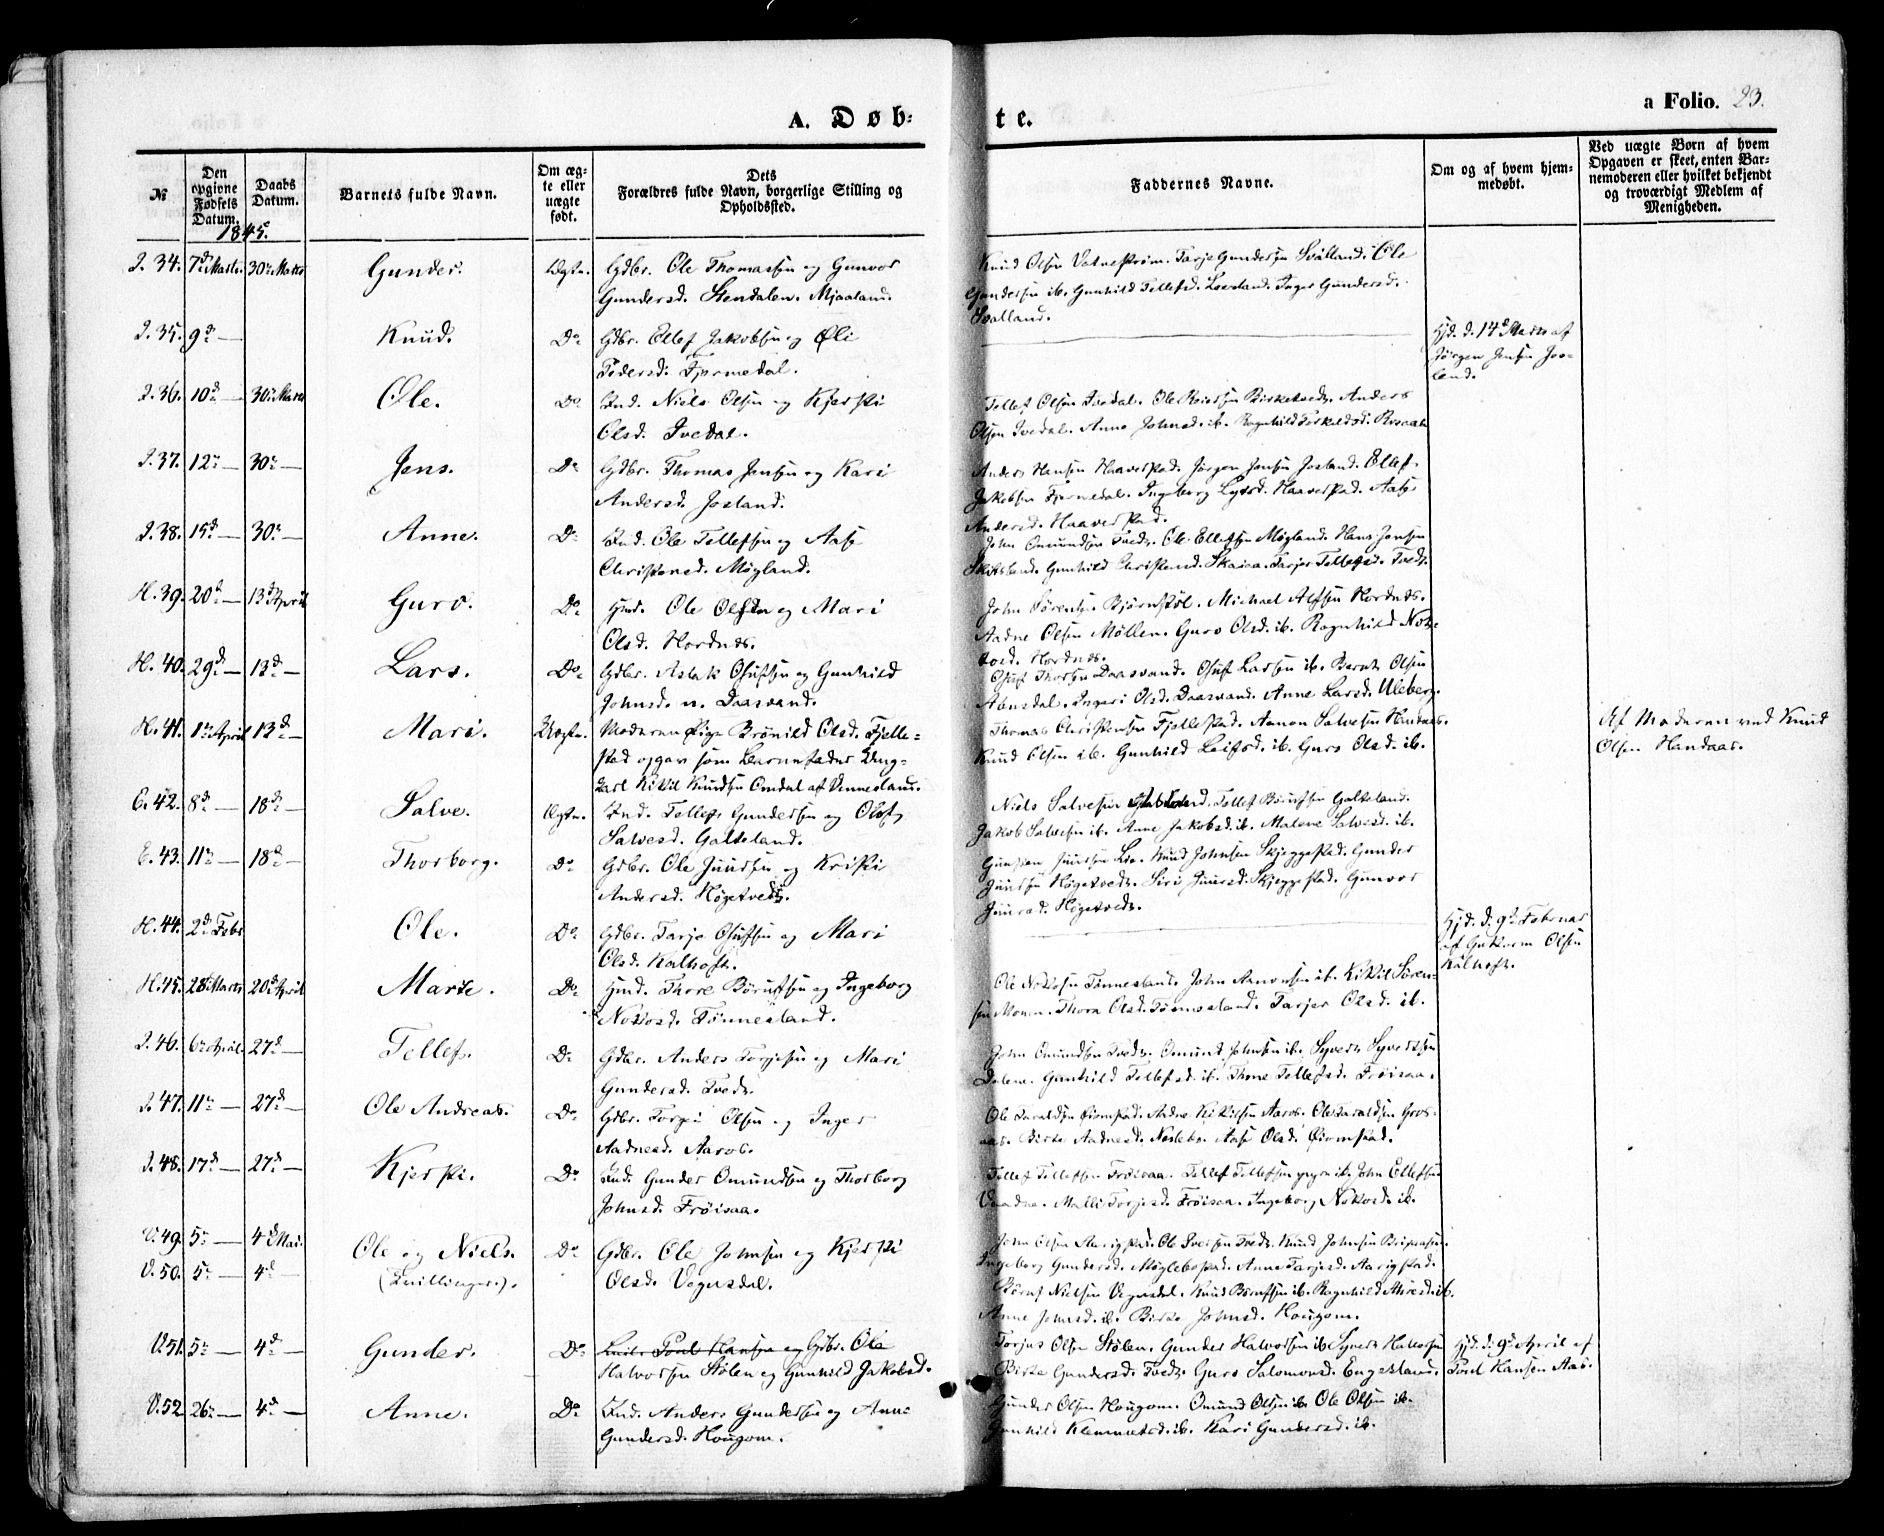 A. Døb-
te.
a Folio. 23.
№
Den opgivne Fødsels Datum.
Daabs Datum.
Barnets fulde Navn.
Om ægte eller uægte født.
Dets Forældres fulde Navn, borgerlige Stilling og Opholdssted.
Faddernes Navne.
Om og af hvem hjemmedøbt.
Ved uægte Børn af hvem Opgaven er skeet, enten Barnemoderen eller hvilket bekjendt og troværdigt Medlem af Menigheden.
1845.
I. 34. 7de Marts. 30te Marts Gunder. Ægte. Gdbr. Ole Thomassen og Gunvor
Gundersd. Stendalen. Mjaaland.
Knud Olsen Vatnestrøm. Tarje Gundersen Svaland. Ole
Gundersen ib. Gunhild Tellefsd. Inger Gundersd.
Svalland.
I. 35. 9d — Knud. Do Gdbr. Ellef Jakobsen og Øli
Pedersd. Fjermedal.
Hjd. d. 14d Marts af
Jørgen Jensen Jos-
land.
I. 36. 10d — 30te Marts Ole. Do Ind. Niels Olsen og Kjersti
Olsd. Ivedal.
Tellef Olsen Ivedal. Ole Birketvedt. Anders
Olsen Ivedal. Anne Johnsd. ib. Ragnhild Torkildsd.
I. 37. 12te — 30te — Jens. Do Gdbr. Thomas Jensen og Kari
Andersd. Josland.
Anders Hansen Haaverstad. Jørgen Jensen Josland. Ellef
Jakobsen Fjermedal. Ingeborg Haaverstad. Aase
Andersd. Haaverstad.
I. 38. 15d — 30te — Anne. Do Ind. Ole Tellefsen og Aase
Christensd. Møgland.
John Omundsen Tvedt. Ole Ellefsen Møgland. Hans Jensen
Gunhild Christensd. Skaiaa. Tarjer Tellefsd. Tvedt.
H. 39. 20d — 13d April Guro. Do Hmd. Ole Olsen og Mari
Olsd. Hordnes.
John Sørensen Bjørnstøl. Michael Alfsen Hordnes.
Aadne Olsen Møllen. Guro Olsd. ib. Ragnhild Not-
tosd. Hordnes.
H. 40. 29d — 13d — Lars. Do Gdbr. Aslak Osufsen og Gunhild
Johnsd. n. Daasvand.
Osuf Thorsen Daasvand. Osuf Larsen ib. Bernt Olsen
Abusdal. Ingeri Olsd. Daasvand. Anne Larsd. Uleberg.
H. 41. 1te April 13d — Mari. Uægte. Moderen Pige Brønild Olsd. Fjelle-
stad opgav som Barnefader Ung-
karl Kittil Knudsen Omdal af Vennesland.
Thomas Christensen Fjellestad. Aanon Salvesen Handaas.
Knud Olsen ib. Gunhild Leifsd. ib. Guro Olsd. ib.
Af Moderen ved Knud
Olsen Handaas.
E. 42. 8d — 18d — Salve. Ægte. Ind. Tellef Gundersen og Oloff
Salvesd. Galteland.
Niels Salvesen Galteland. Tellef Børufsen Galteland.
Jakob Salvesen ib. Anne Jakobsd. ib. Malene Salvesd. ib.
E. 43. 11te — 18d — Thorborg. Do Gdbr. Ole Juursen og Kristi
Andersd. Høgetvedt.
Juursen Lia. Knud Johnsen Skjeggestad. Gunder
Juursen Høgetvedt. Siri Juursd. Skjeggestad. Gunvor
Juursd. Høgetvedt.
H. 44. 2d Febr Ole. Do Gdbr. Tarje Osufsen og Mari
Olsd. Kalhoft.
Hjd. d. 9de Februar
af Guttorm Olsen
Kalhoft.
H. 45. 28de Marts 20de April Marte. Do Hmd. Thore Børufsen og Ingeborg
Notosd. Tønnesland.
Ole Notosen Tønnesland. John Aanonsen ib. Kittil Søren-
sen Moren. Thora Olsd. Tønnesland. Tarjer Olsd. ib.
I. 46. 6te April 27d — Tellef. Do Gdbr. Anders Torjesen og Mari
Gundersd. Tvedt.
John Omundsen Tvedt. Omund Johnsen ib. Syvert Syvertsen
Dalene. Gunhild Tellefsd. ib. Thone Tellefsd. Frøisaa.
I. 47. 11te — 27d — Ole Andreas. Do Gdbr. Torje Olsen og Inger
Aadnesd. Aaros.
Ole Taraldsen Øiomstad. Aadne Kittilsen Aaros. Ole Taraldsen
Birte Aadnesd. Aase Olsd. Øiomstad.
I. 48. 17d — 27d — Kjersti. Do Ind. Gunder Omundsen og Thorborg
Johnsd. Frøisaa.
Tellef Tellefsen Frøisaa. Tellef Tellefsen yngre ib. John Ellefsen
Malli Torjesd. Frøisaa. Ingeborg Notosd. ib.
V. 49. 5te — 4d Mai.
V. 50. 5te — 4d — Ole og Niels.
(Tvillinger). Do Gdbr. Ole Johnsen og Kjersti
Olsd. Vegusdal.
John Olsen Aarigstad. Ole Tvedt. Knud Johnsen
Ingeborg Gundersd. Møglebostad. Anne Tarjesd. Aarigstad.
Børuf Nielsen Vegusdal. Knud Børufsen ib. Ragnhild ib.
Anne Johnsd. ib. Birte Johnsd. Hougom.
V. 51. 5te — 4d — Gunder. Do Poul Hansen og Gdbr. Ole
Halvorsen Stølen og Gunhild Jakobsd.
Torjus Olsen Stølen. Gunder Halvorsen ib. Syvert Halvorsen
Birte Gundersd. Tvedt. Guro Salomonsd. Engesland.
Hjd. d. 9d April af
Poul Hansen Aas.
V. 52 26te — 4d — Anne. Do Ind. Anders Gundersen og Anne
Gundersd. Hougom.
Gunder Olsen Hougom. Omund Olsen ib. Ole Olsen ib.
Gunhild Klemmetsd. ib. Kari Gundersd. ib.